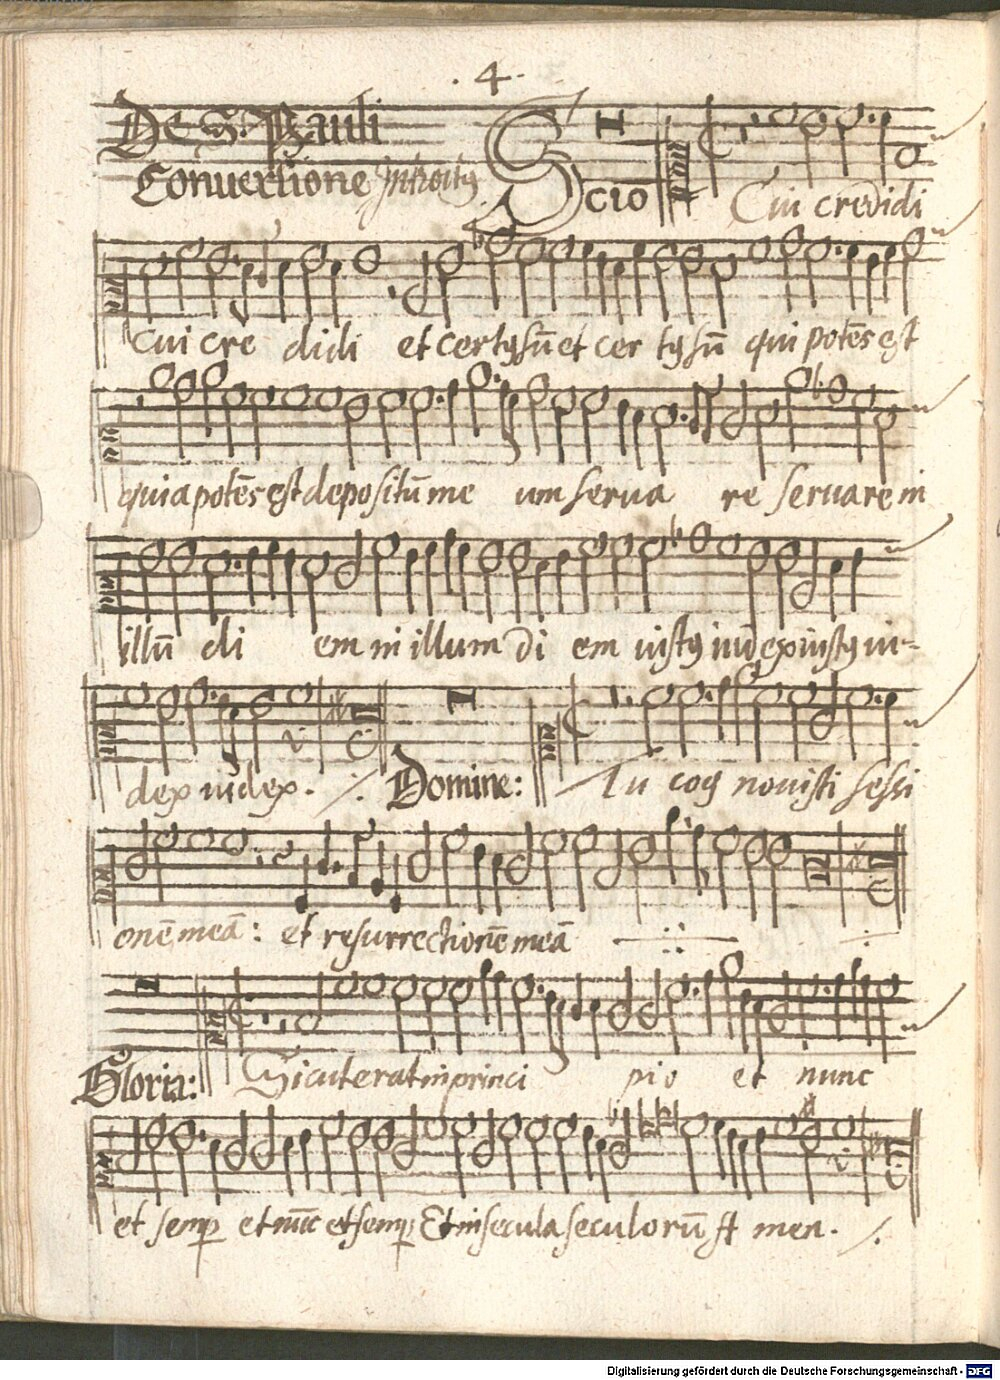 . 4 .
De S. Pauli
Conuertione Introitꝰ Scio Cui credidi
cui cre didi et certꝰ sũ et cer tꝰ sũ qui potẽs est
quia potẽs est depositũ me um serua re seruare in
illũ di em in illum di em iustꝰ iudex iustꝰ iu-
dex iudex. Domine: Tu cog nouisti sessi
onẽ meã: et resurrectionẽ meã
Gloria: Sicut erat in princi pio et nunc
et semꝑ et nũc et semꝑ Et in secula seculorũ A men.
Digitalisierung gefördert durch die Deutsche Forschungsgemeinschaft - DFG